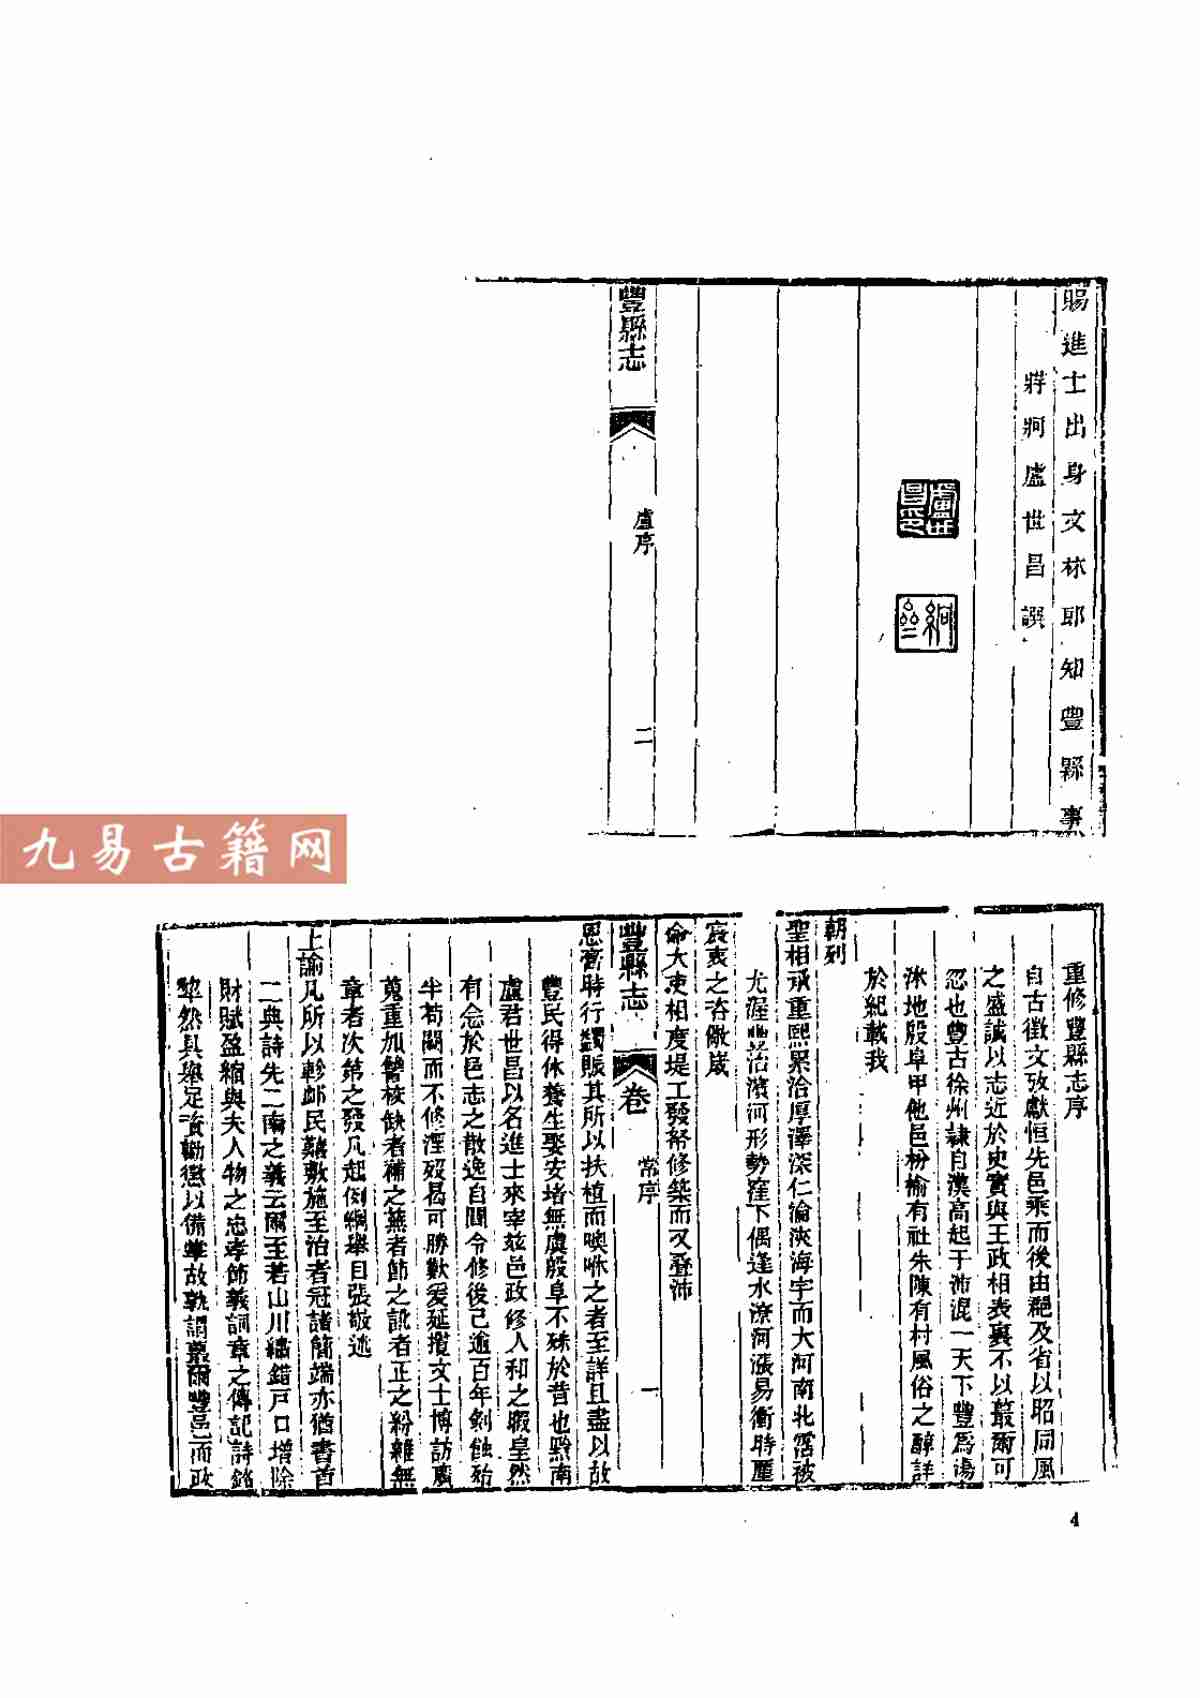 賜進士出身文林郎知豐縣事
牂牁盧世昌譔
盧世昌印
盧序
二
豐縣志
九易古籍网
重修豐縣志序
自古徵文攷獻恒先邑乘而後由郡及省以昭同風
之盛誠以志近於史實與王政相表裏不以叢爾可
忽也豐古徐州隷自漢高起于沛混一天下豐為湯
沐地殷阜甲他邑枌榆有社朱陳有村風俗之醇詳
於紀載我
朝列
聖相承重熙累洽厚澤深仁淪浹海宇而大河南北霑被
尤渥豐治濱河形勢窪下偶逢水潦河漲易衝時厪
宸衷之咨儆歲
命大吏相度堤工發帑修築而又疊沛
豐縣志
卷
常序
一
恩膏時行蠲賑其所以扶植而噢咻之者至詳且盡以故
豐民得休養生娶安堵無虞殷阜不殊於昔也黔南
盧君世昌以名進士來宰兹邑政修人和之暇皇然
有念於邑志之散逸自閻令修後已逾百年剝蝕殆
半苟闕而不修湮歿曷可勝歎爰延攬文士博訪廣
蒐重加讐核缺者補之蕪者節之訛者正之紛雜無
章者次第之發凡起例綱舉目張敬述
上諭凡所以軫䘏民嘉敷施至治者冠諸簡端亦猶書首
二典詩先二南之義云爾至若山川繡錯戸口增除
財賦盈縮與夫人物之忠孝節義詞章之傳記詩銘
犂然具舉足資勸懲以備掌故孰謂蕞爾豐邑而政
4